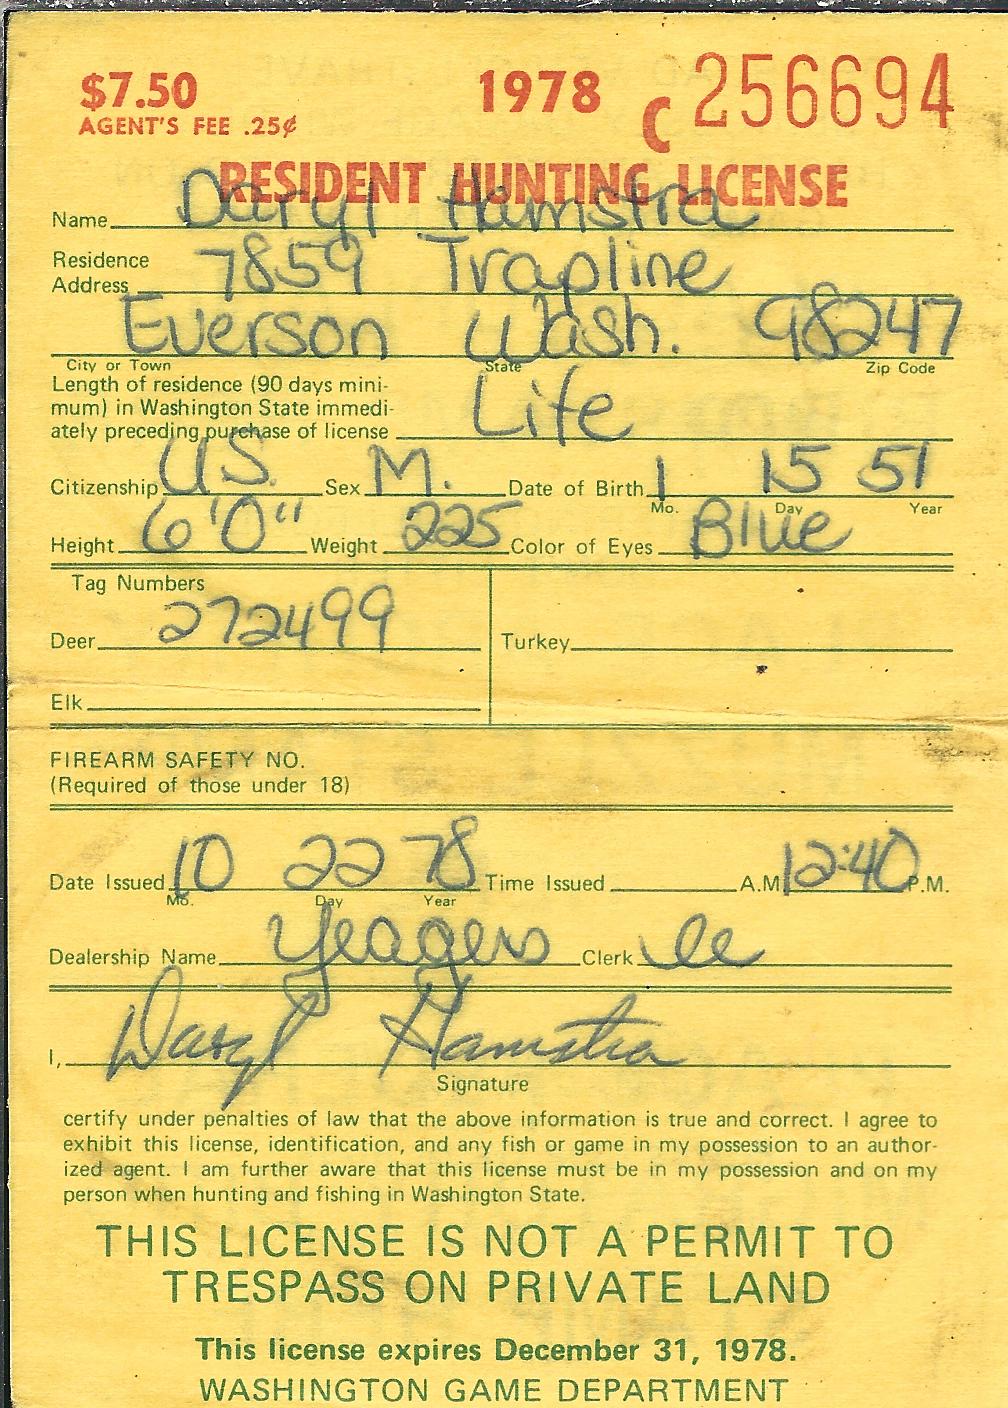 $7.50 1978 C 256694
AGENT'S FEE .25¢
RESIDENT HUNTING LICENSE
Name Daryl Hamstra
Residence
Address 7859 Trapline
Everson Wash. 98247
City or Town State Zip Code
Length of residence (90 days mini-
mum) in Washington State immedi-
ately preceding purchase of license Life
Citizenship U.S. Sex M. Date of Birth 1 15 51
Mo. Day Year
Height 6'0" Weight 225 Color of Eyes Blue
Tag Numbers
Deer 272499 Turkey
Elk
FIREARM SAFETY NO.
(Required of those under 18)
Date Issued 10 22 78 Time Issued A.M. 12:40 P.M.
Mo. Day Year
Dealership Name Yeagers Clerk
I, Daryl Hamstra
Signature
certify under penalties of law that the above information is true and correct. I agree to
exhibit this license, identification, and any fish or game in my possession to an author-
ized agent. I am further aware that this license must be in my possession and on my
person when hunting and fishing in Washington State.
THIS LICENSE IS NOT A PERMIT TO
TRESPASS ON PRIVATE LAND
This license expires December 31, 1978.
WASHINGTON GAME DEPARTMENT